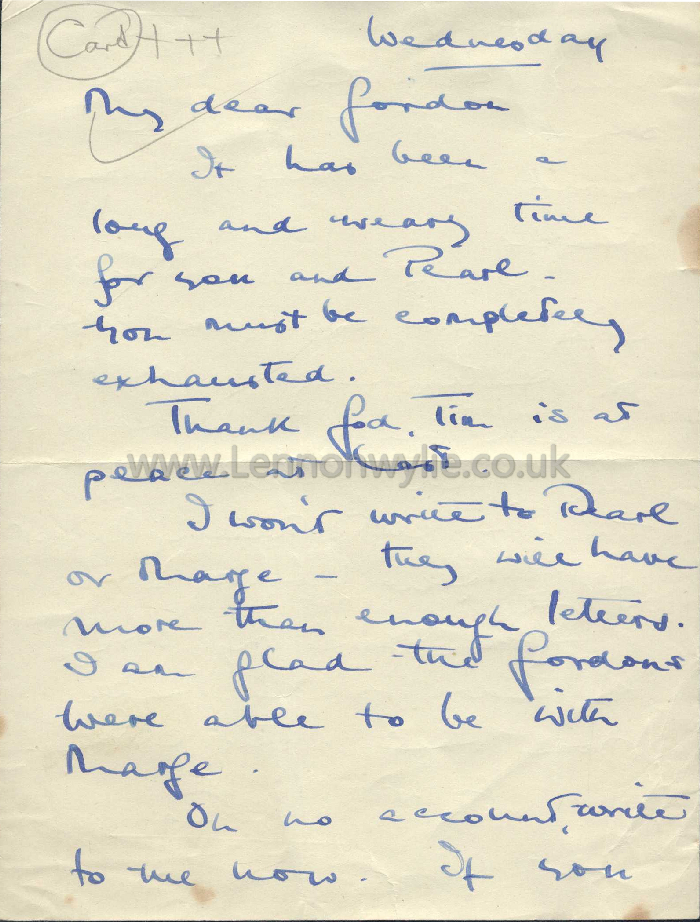 Card +++
Wednesday
My dear Gordon
It has been a
long and weary time
for you and Pearl -
you must be completely
exhausted.
Thank God, Tim is at
peace at last.
www.Lennonwylie.co.uk
I won't write to Pearl
or Marge - they will have
more than enough letters.
I am glad the Gordons
were able to be with
Marge.
On no account, write
to me now. If you